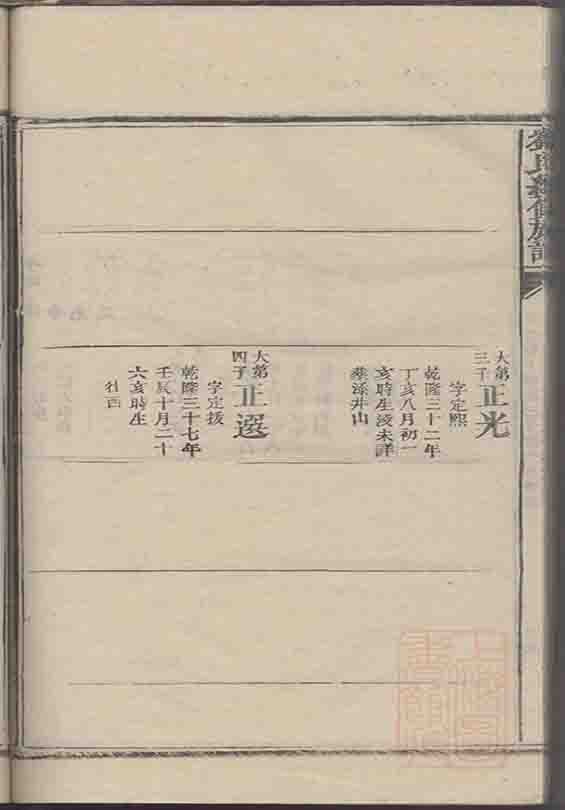 氏續修族譜
大第
三子
正光
字定熙
乾隆三十二年
丁亥八月初一
亥時生歿未詳
葬漆井山
大第
四子
正選
字定拔
乾隆三十七年
壬辰十月二十
六亥時生
往西